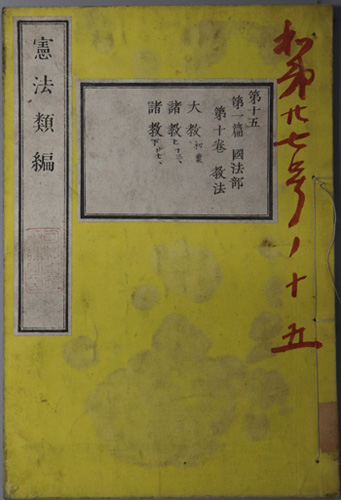 和第廿七号ノ十五
第十五
第一篇 國法部
第十卷 教法
大教
諸教
諸教
憲法類編